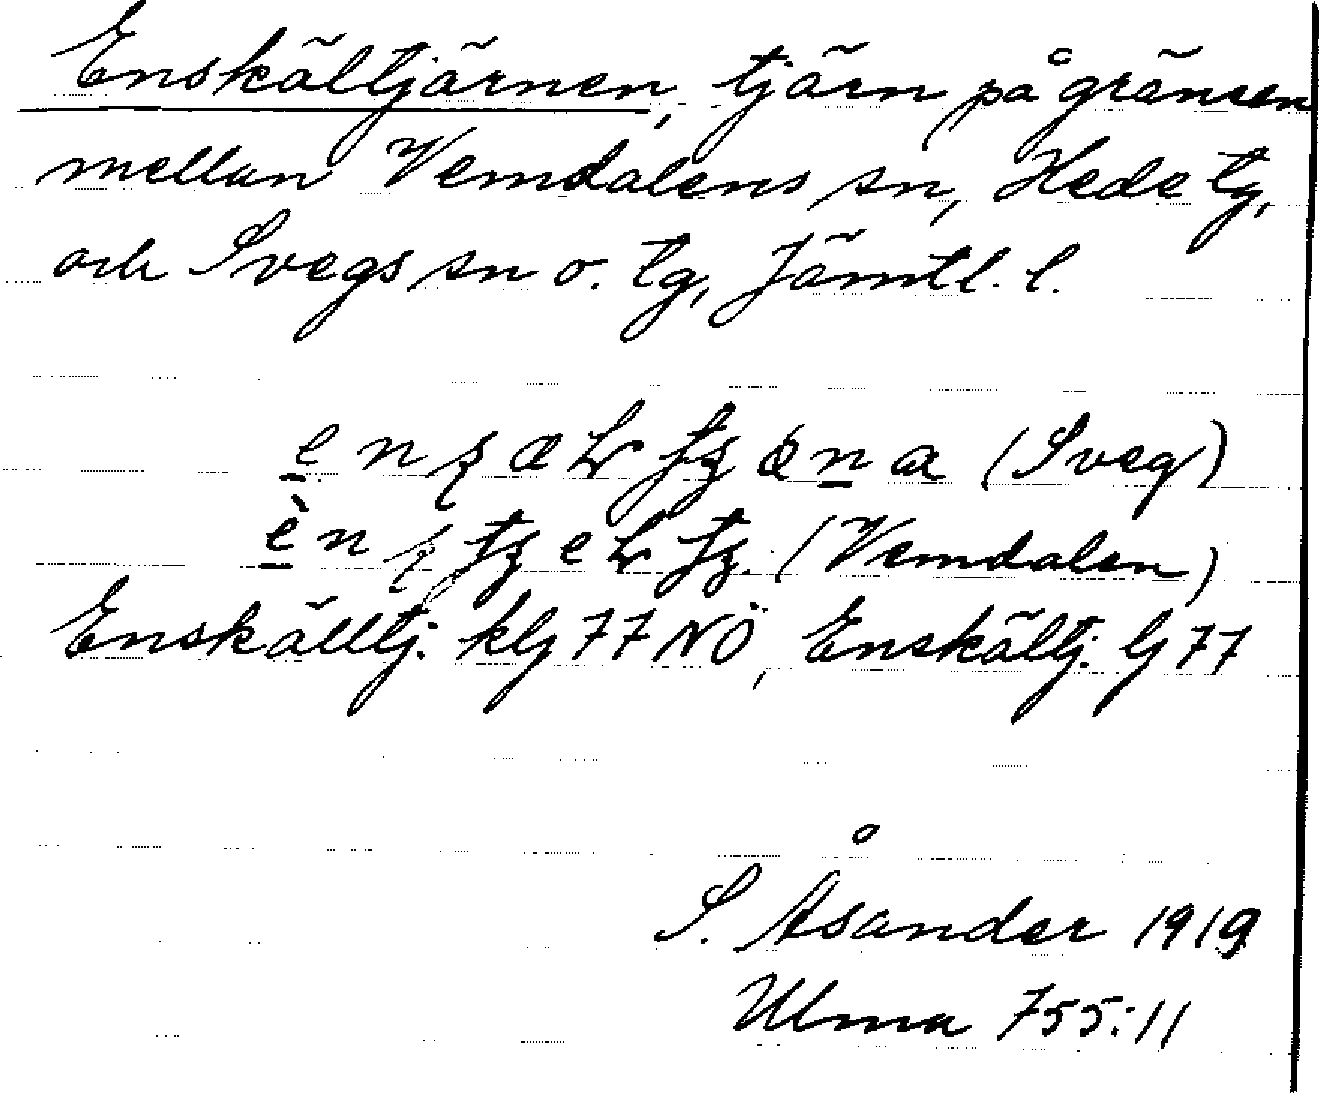 Enskältjärnen, tjärn på gränsen
mellan Vemdalens sn, Hede tg,
och Svegs sn o. tg, Jämtl. l.
(Sveg)
(Vemdalen)
Enskälltj. klj 77 NÖ, Enskältj. lj 77
S. Åsander 1919
Ulma 755:11